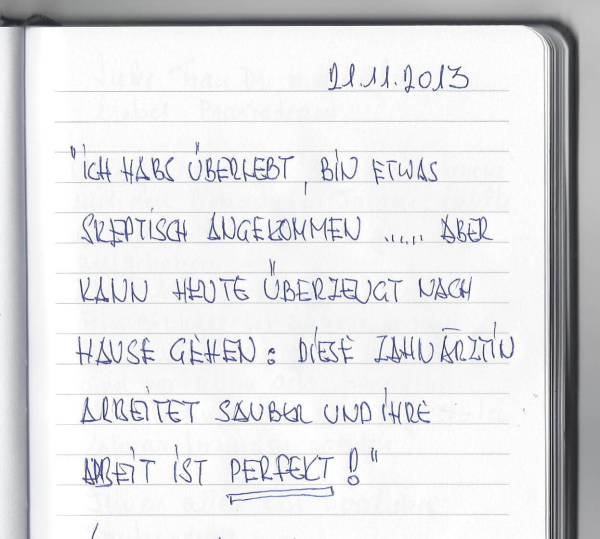 21.11.2013
"ICH HABS ÜBERLEBT, BIN ETWAS
SKEPTISCH ANGEKOMMEN ...... ABER
KANN HEUTE ÜBERZEUGT NACH
HAUSE GEHEN: DIESE ZAHNÄRZTIN
ARBEITET SAUBER UND IHRE
ARBEIT IST PERFEKT!"